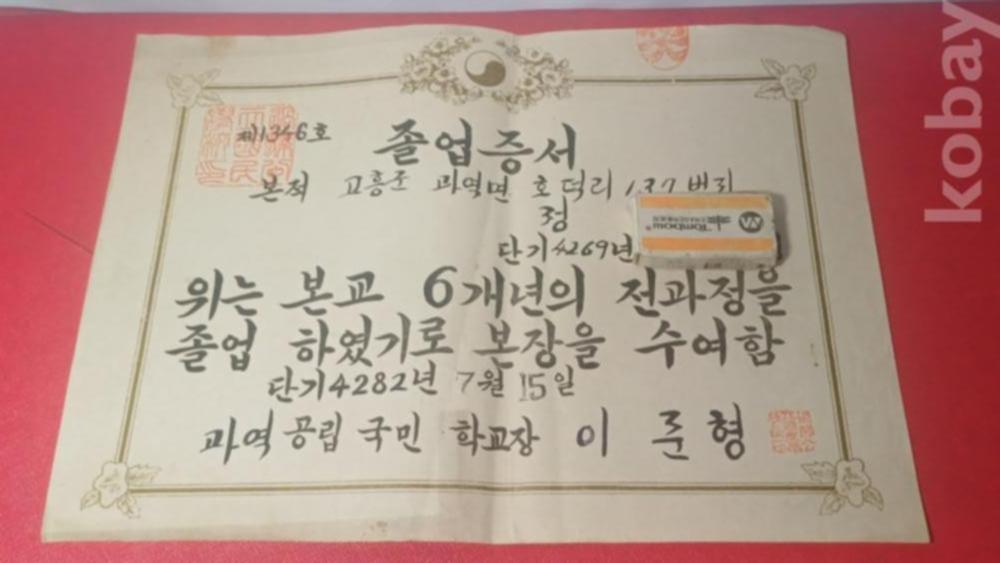 제1346호
졸업증서
본적 고흥군 과역면 호덕리 137번지
정
단기4269년
위는 본교 6개년의 전과정을
졸업 하였기로 본장을 수여함
단기4282년 7월 15일
과역공립국민학교장 이준형
Tombow
kobay